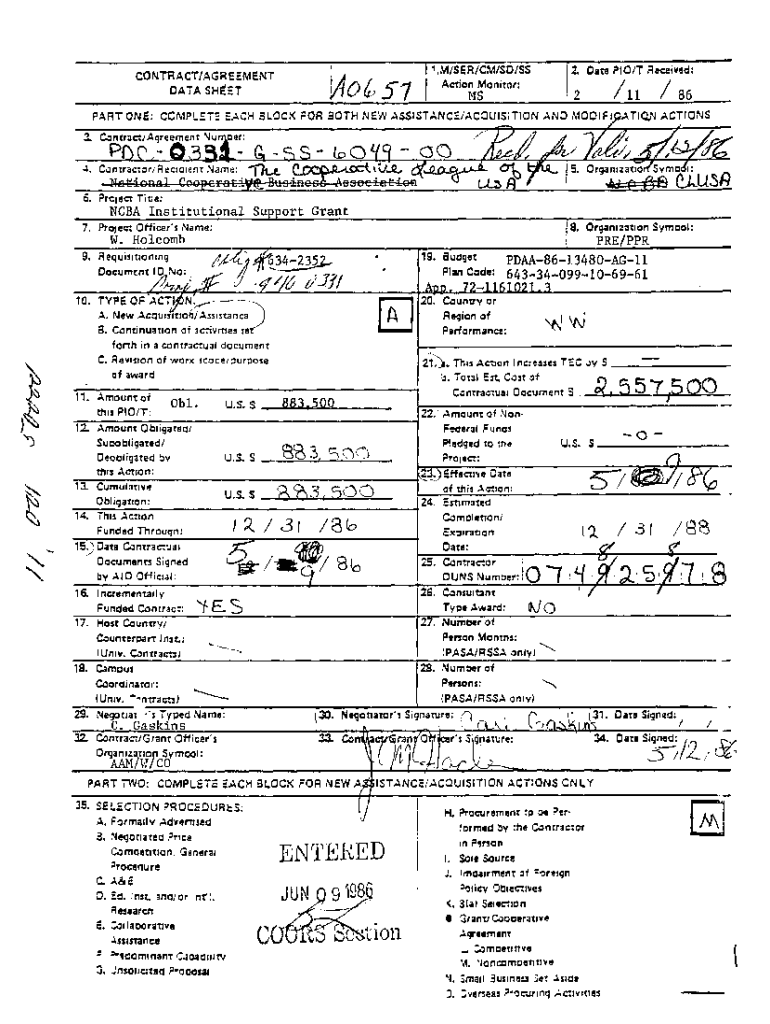 CONTRACT/AGREEMENT
DATA SHEET
A0657
1. M/SER/CM/SD/SS
Action Monitor:
MS
2. Date PIO/T Received:
2 / 11 / 86
PART ONE: COMPLETE EACH BLOCK FOR BOTH NEW ASSISTANCE/ACQUISITION AND MODIFICATION ACTIONS
3. Contract/Agreement Number:
PDC-0331-G-SS-6049-00
4. Contractor/Recipient Name: The Cooperative League of the
National Cooperative Business Association USA
5. Organization Symbol:
CLUSA
6. Project Title:
NCBA Institutional Support Grant
7. Project Officer's Name:
W. Holcomb
8. Organization Symbol:
PRE/PPR
9. Requisitioning
Document ID No:
634-2352
19. Budget PDAA-86-13480-AG-11
Plan Code: 643-34-099-10-69-61
App. 72-1161021.3
10. TYPE OF ACTION:
A. New Acquisition/Assistance
B. Continuation of activities set
forth in a contractual document
C. Revision of work scope/purpose
of award
A
20. Country or
Region of
Performance:
WW
21. a. This Action Increases TEC by $
b. Total Est. Cost of
Contractual Document $ 2,557,500
11. Amount of
this PIO/T: Obl. U.S. $ 883,500
12. Amount Obligated/
Subobligated/
Deobligated by
this Action:
U.S. $ 883,500
22. Amount of Non-
Federal Funds
Pledged to the
Project:
U.S. $ -0-
13. Cumulative
Obligation:
U.S. $ 883,500
23. Effective Date
of this Action:
5/ 9/86
14. This Action
Funded Through:
12 / 31 / 86
24. Estimated
Completion/
Expiration
Date:
12 / 31 / 88
15. Date Contractual
Documents Signed
by AID Official:
5 / 9 / 86
25. Contractor
DUNS Number:
16. Incrementally
Funded Contract: YES
26. Consultant
Type Award: NO
17. Host Country/
Counterpart Inst.:
(Univ. Contracts)
27. Number of
Person Months:
(PASA/RSSA only)
18. Campus
Coordinator:
(Univ. Contracts)
28. Number of
Persons:
(PASA/RSSA only)
29. Negotiator's Typed Name:
C. Gaskins
30. Negotiator's Signature:
31. Date Signed:
32. Contract/Grant Officer's
Organization Symbol:
AAM/W/CO
33. Contract/Grant Officer's Signature:
34. Date Signed:
5/12/86
PART TWO: COMPLETE EACH BLOCK FOR NEW ASSISTANCE/ACQUISITION ACTIONS ONLY
35. SELECTION PROCEDURES:
A. Formally Advertised
B. Negotiated Price
Competition, General
Procedure
C. A&E
D. Ed. Inst. and/or Int'l.
Research
E. Collaborative
Assistance
F. Predominant Capability
G. Unsolicited Proposal
ENTERED
JUN 09 1986
COORS Section
H. Procurement to be Per-
formed by the Contractor
in Person
I. Sole Source
J. Impairment of Foreign
Policy Objectives
K. 8(a) Selection
Grant/Cooperative
Agreement
L. Competitive
M. Noncompetitive
N. Small Business Set Aside
O. Overseas Procuring Activities
M